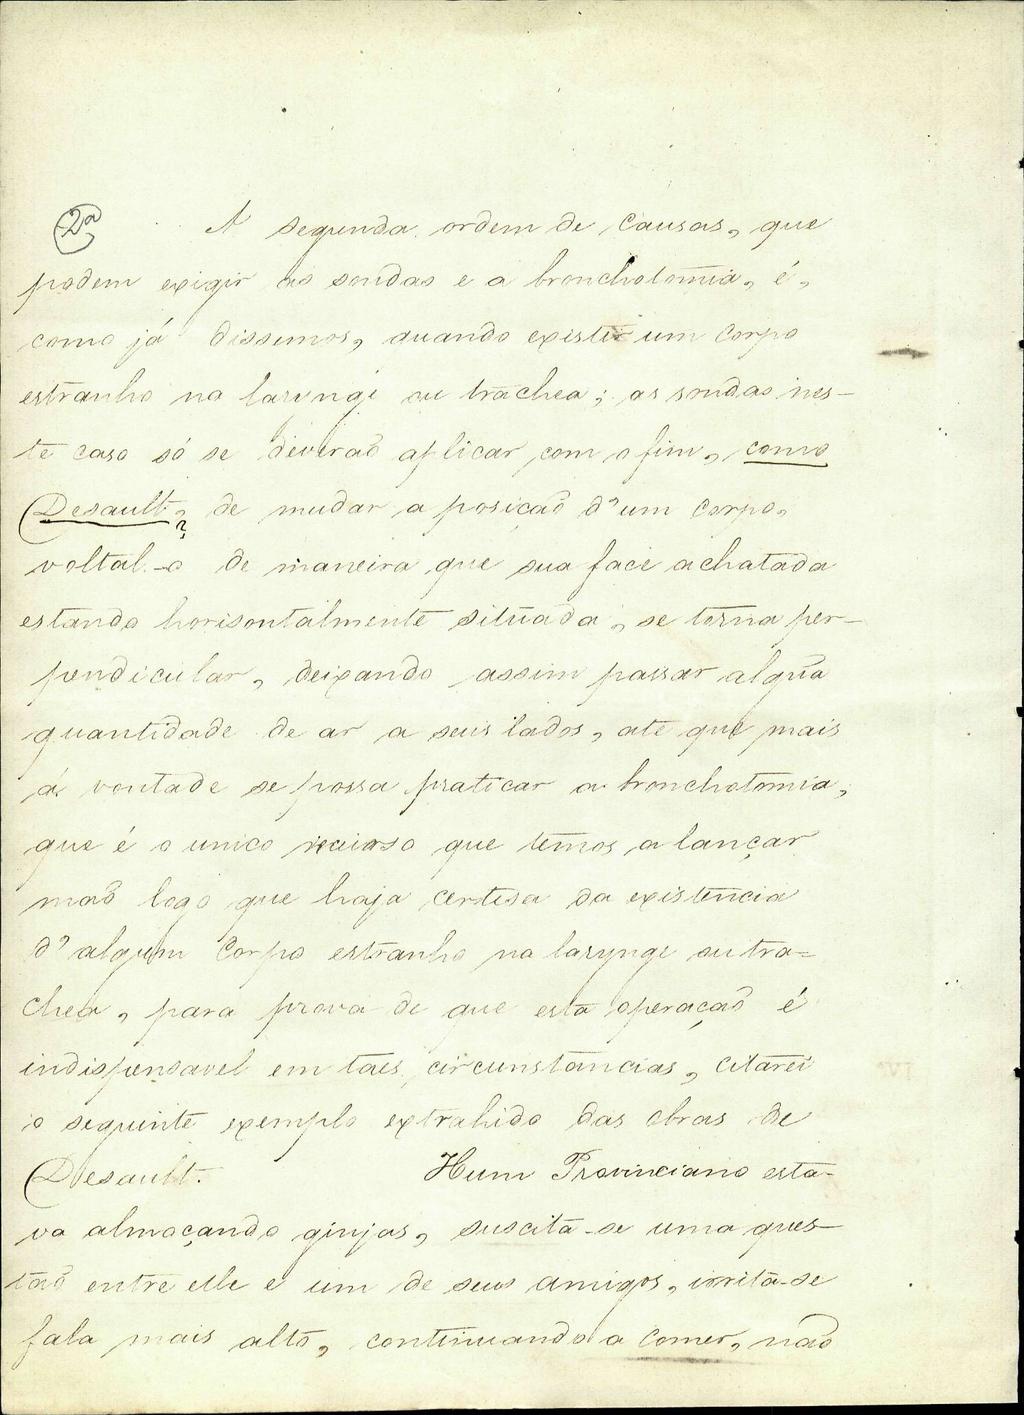 2ª A segunda ordem de causas, que
podem exigir as sondas e a bronchotomia, é,
como já dissemos, quando existir um corpo
estranho na laryngi ou trachea; as sondas nes-
te caso só se deveraõ aplicar com o fim, como
Desault, ? de mudar a posicaõ d'um corpo,
voltal-o de maneira que sua face achatada
estando horisontalmente situada, se torna per-
pendicular, deixando assim passar algũa
quantidade de ar a seus lados, até que mais
á vontade se possa praticar a bronchotomia,
que é o unico recurso que temos a lançar
maõ logo que haja certesa da existencia
d'algum corpo estranho na laryngi ou tra=
chea, para prova de que esta operaçaõ é
indispensavel em taes circunstancias, citarei
o seguinte exemplo extrahido das obras de
Desault. Hum Provinciano esta-
va almoçando ginjas, suscita-se uma ques-
taõ entre elle e um de seus amigos, irrita-se
fala mais alto, continuando a comer, naõ